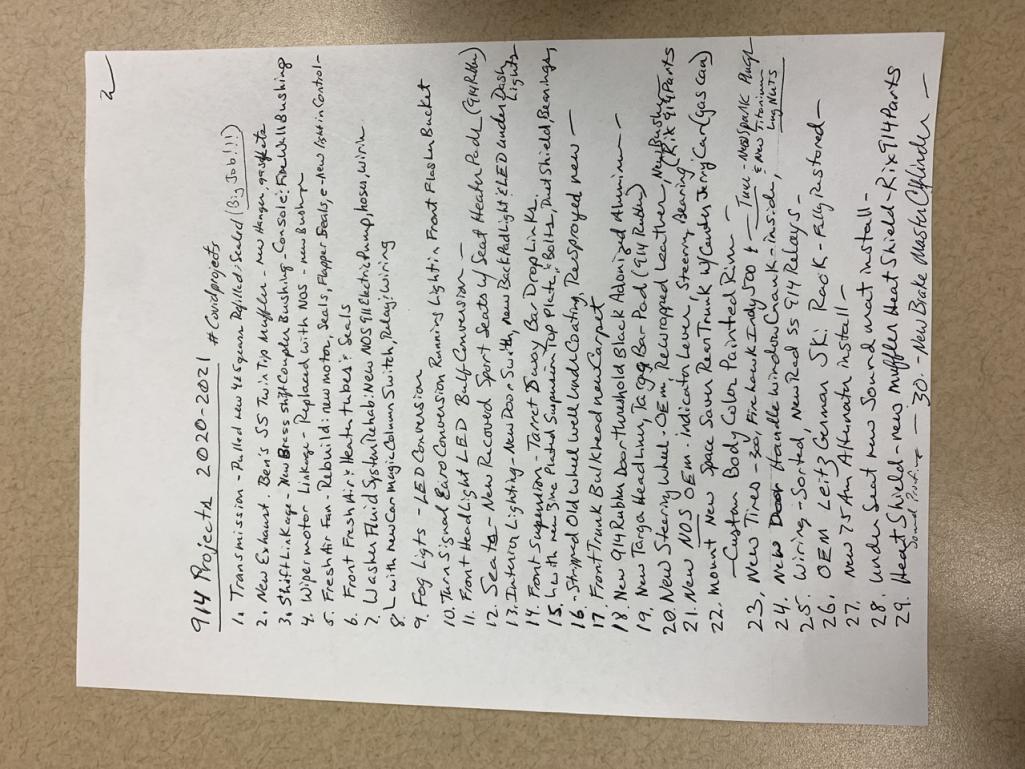 2
914 Projects 2020-2021 #Covidprojects
1. Transmission - Pulled new 4&5 gears Refilled & Sealed (Big Job!!!)
2. New Exhaust. Ben's SS Twin Tip Muffler - new Hanger, gaskets
3. Shift Linkage - New Brass shift Coupler Bushing - Console & Firewall Bushing
4. Wiper motor Linkage - Replaced with NOS - new Bushings
5. Fresh Air Fan - Rebuild: new motor, Seals, Flapper Seals, e - New Light in Control -
6. Front Fresh Air & Heater tubes & Seals
7. Washer Fluid System Rehab: New NOS 911 Electric Pump, hoses, wiring
8. with new Car Magic Column Switch, Relay & Wiring
9. Fog Ligts - LED Conversion
10. Turn Signal Euro Conversion Running Light in Front Flasher Bucket
11. Front HeadLight LED Bulb Conversion -
12. Seats - New Recoverd Sport Seats w/ Seat Heater Pads (914 Rubber)
13. Interior Lighting - New Door Switch, new Back Pad Light & LED under Dash Lights
14. Front Suspension - Tarret Sway Bar Drop Links.
15. with new Zinc Plated Suspension Top Plate, & Bolts, Dust Shield, Bearings,
16. - Stripped Old wheel well under Coating, Resprayed new -
17. Front Trunk Bulkhead new Carpet
18. New 914 Rubber Door threshold Black Adonized Aluminum -
19. New Targa Headliner, Targa Bar Pad (914 Rubber)
20. New Steering Wheel - OEM Rewrapped Leather, New Bushing
21. New NOS OEM - indicator Lever, Steering Bearing (Rix 914 Parts
22. mount New Space Saver Rear Trunk w/ Cander, Jerry Can (gas can)
- Custom Body Color Painted Rim -
23. New Tires - 200, Firehawk Indy 500 & Tune - New Spark Plugs
& New Titanium Lug NUTS
24. New Handle window Crank - inside,
25. Wiring - Sorted, New Rad SS 914 Relays -
26. OEM Leitz German Ski Rack - Fully Restored -
27. New 75 Am Alternator install -
28. under Seat new Sound mat install -
29. Heat Shield - new Muffler Heat Shield - Rix 914 Parts
Sound Proofing - 30. - New Brake Master Cylinder -